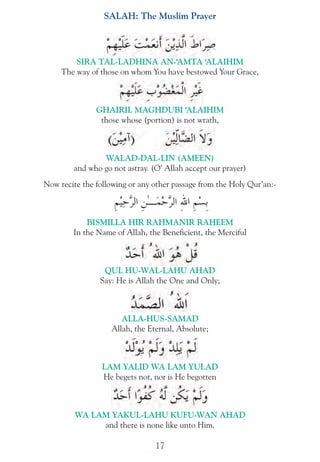 SALAH: The Muslim Prayer
صِرَاطَ الَّذِيْنَ أَنْعَمْتَ عَلَيْهِمْ
SIRA TAL-LADHINA AN-‘AMTA ‘ALAIHIM
The way of those on whom You have bestowed Your Grace,
غَيْرِ الْمَغْضُوْبِ عَلَيْهِمْ
GHAIRIL MAGHDUBI ‘ALAIHIM
those whose (portion) is not wrath,
وَلاَ الضَّالِّيْنَ (آمِيْنَ)
WALAD-DAL-LIN (AMEEN)
and who go not astray. (O’ Allah accept our prayer)
Now recite the following or any other passage from the Holy Qur’an:-
بِسْمِ اللهِ الرَّحْمـٰنِ الرَّحِيْمِ
BISMILLA HIR RAHMANIR RAHEEM
In the Name of Allah, the Beneficient, the Merciful
قُلْ هُوَ اللهُ أَحَدٌ
QUL HU-WAL-LAHU AHAD
Say: He is Allah the One and Only;
اَللهُ الصَّمَدُ
ALLA-HUS-SAMAD
Allah, the Eternal, Absolute;
لَمْ يَلِدْ وَلَمْ يُوْلَدْ
LAM YALID WA LAM YULAD
He begets not, nor is He begotten
وَلَمْ يَكُنْ لَّهُ كُفُوًا أَحَدٌ
WA LAM YAKUL-LAHU KUFU-WAN AHAD
and there is none like unto Him.
17